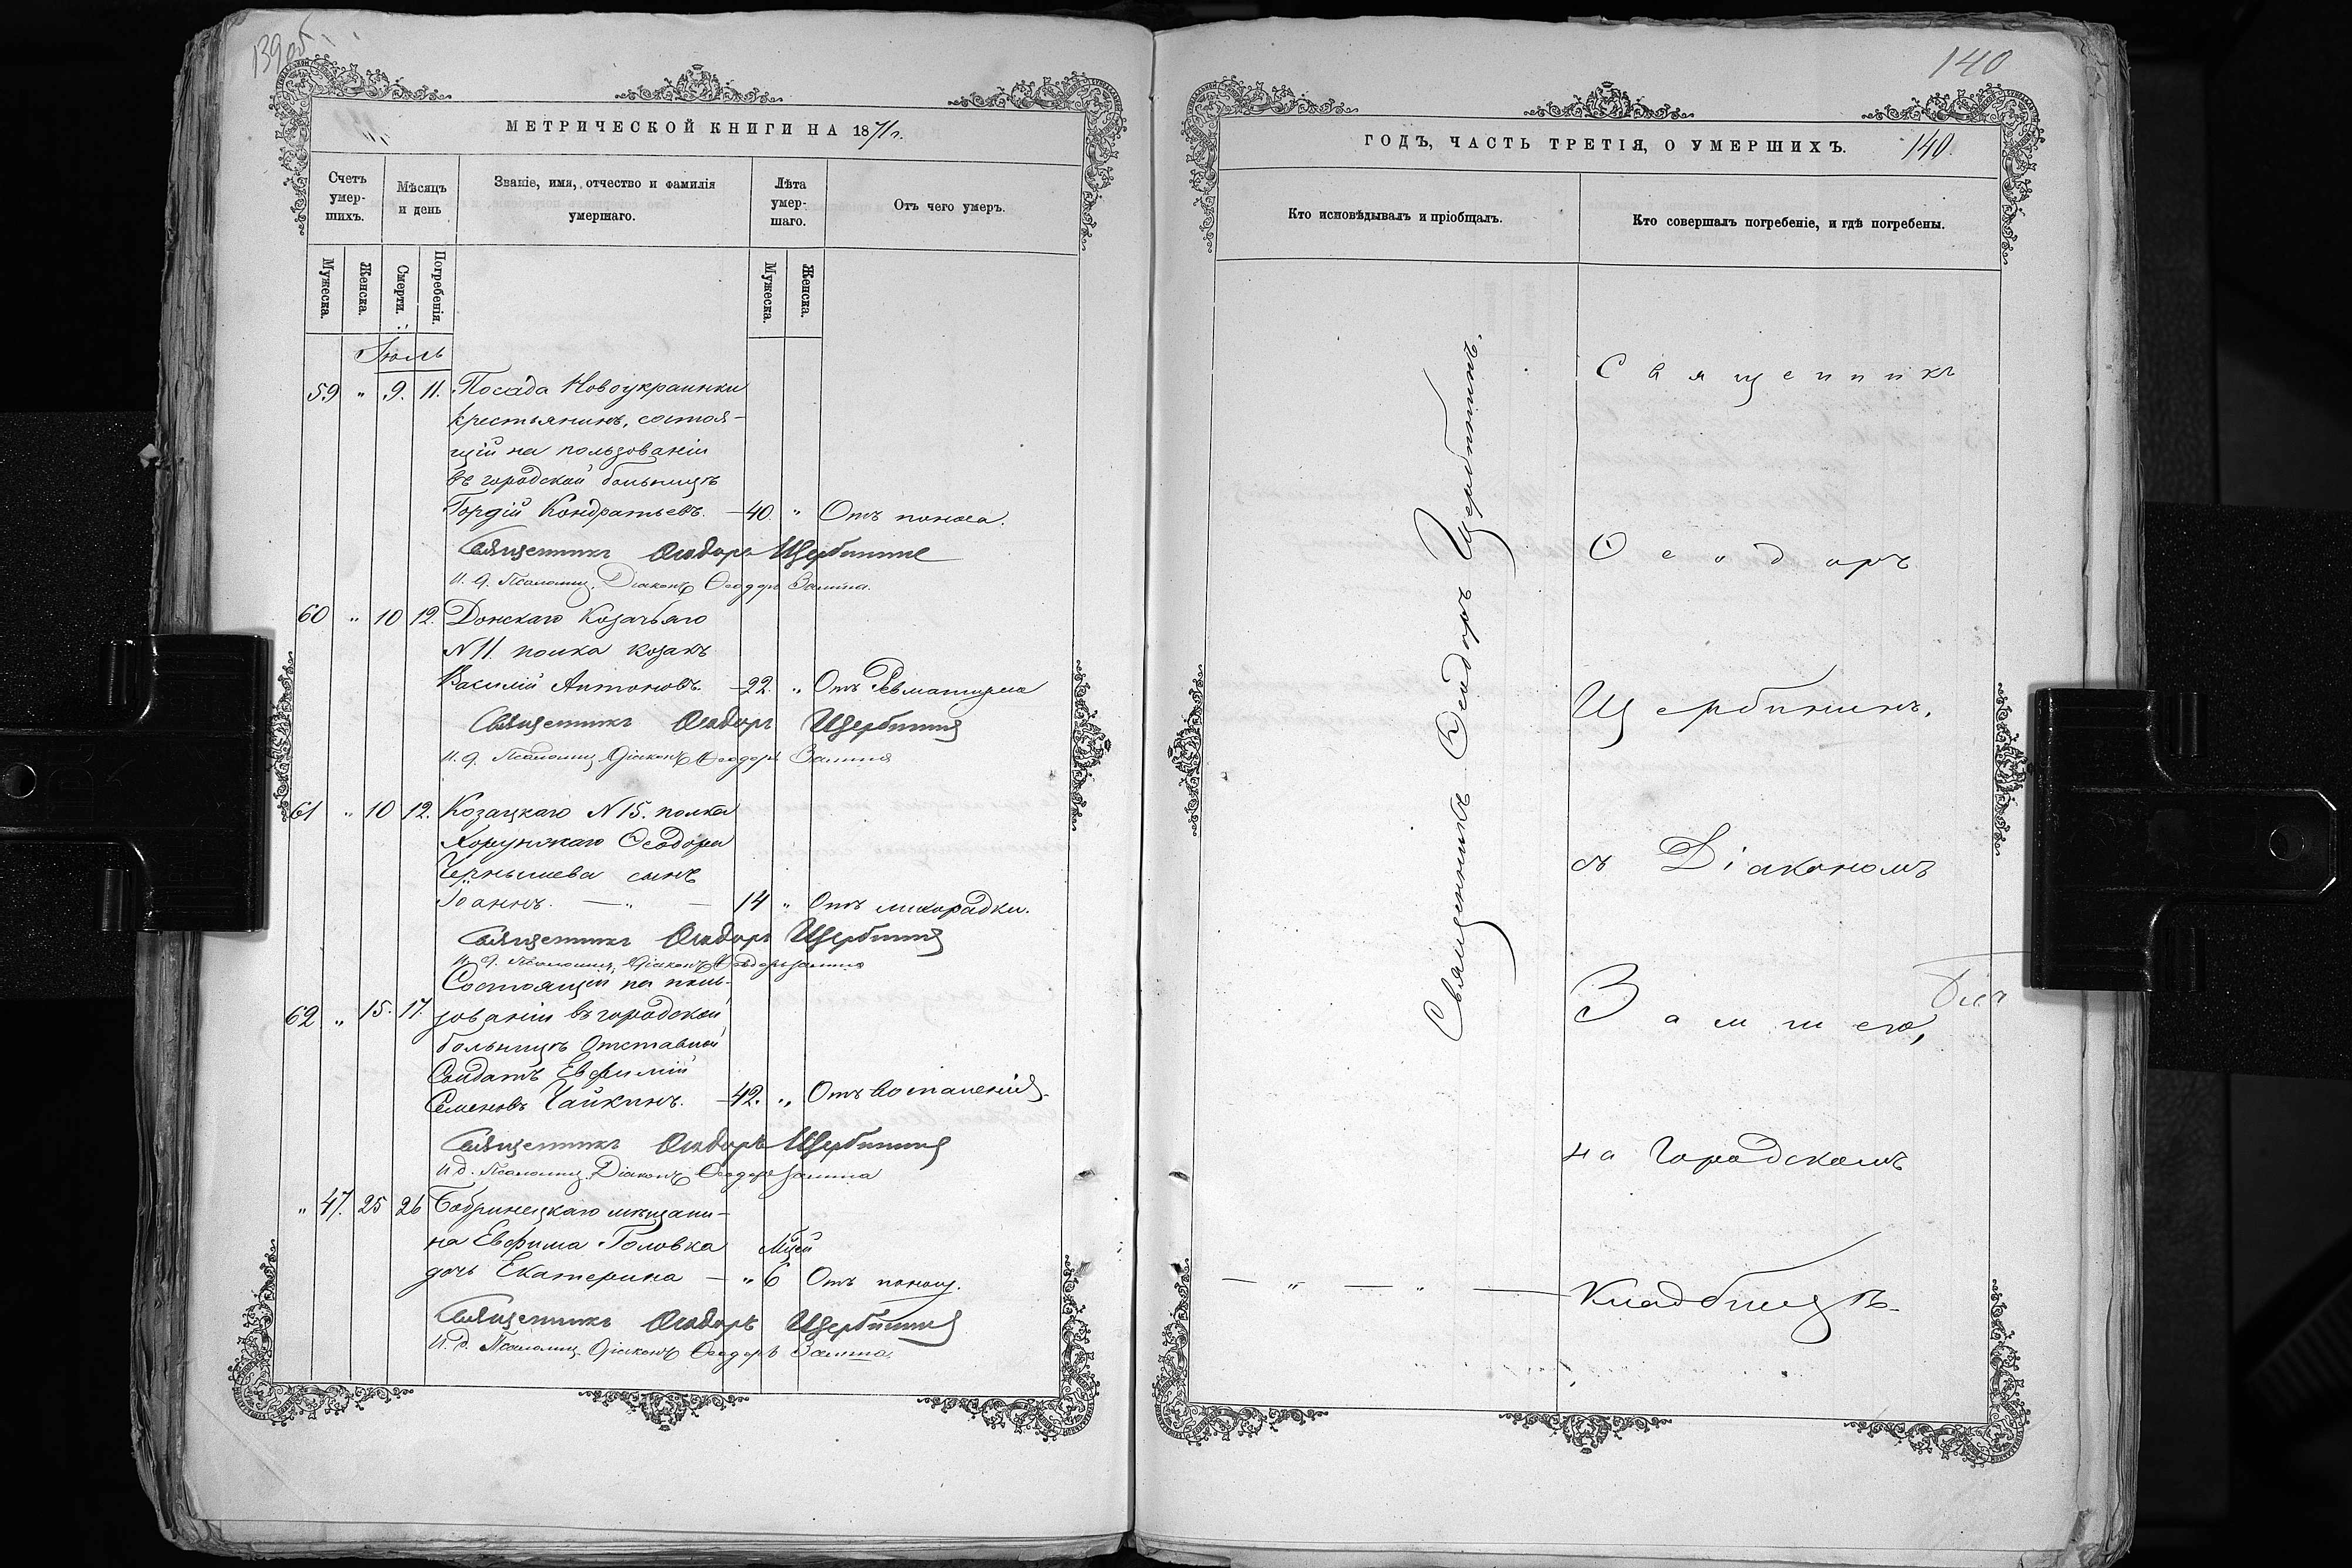 139об
МЕТРИЧЕСКОЙ КНИГИ НА 1871 г.
Счетъ умер-шихъ.
Мѣсяцъ и день
Званіе, имя, отчество и фамилія умершаго.
Лѣта умер-шаго.
Отъ чего умеръ.
Мужеска.
Женска.
Смерти.
Погребенія.
Мужеска.
Женска.
Іюль
59 „ 9. 11. Посада Новоукраинки
крестьянинъ, состоя-
щій на пользованіи
въ городской больницѣ
Гордій Кондратьевъ. — 40. „ Отъ поноса.
Священникъ Ѳеодоръ Щербининъ
И. д. Псаломщ. Діаконъ Ѳеодоръ Замша.
60 „ 10 12. Донскаго Козачьяго
N 11. полка козакъ
Василій Антоновъ. — 22. „ Отъ Ревматизма
Священникъ Ѳеодоръ Щербининъ
И. д. Псаломщ. Діаконъ Ѳеодоръ Замша
61 „ 10 12. Козацкаго N 15. полка
Хорунжаго Ѳеодора
Чернышева сынъ
Іоаннъ. — „ — 14 „ Отъ лихорадки.
Священникъ Ѳеодоръ Щербининъ
И. д. Псаломщ. Діаконъ Ѳеодоръ Замша
Состоящій на поль-
62 „ 15. 17. зованіи въ городской
больницѣ Отставной
Солдатъ Евфимій
Семеновъ Чайкинъ. — 42. „ Отъ воспаленія.
Священникъ Ѳеодоръ Щербининъ
И. д. Псаломщ. Діаконъ Ѳеодоръ Замша
„ 47. 25 26 Бобринецкаго мѣщани-
на Евфима Головка Мѣся
дочь Екатерина — „ 6 Отъ поносу.
Священникъ Ѳеодоръ Щербининъ
И. д. Псаломщ. Діаконъ Ѳеодоръ Замша.
140
ГОДЪ, ЧАСТЬ ТРЕТІЯ, О УМЕРШИХЪ. 140.
Кто исповѣдывалъ и пріобщалъ.
Кто совершалъ погребеніе, и гдѣ погребены.
Священникъ Ѳеодоръ Щербининъ.
Священникъ
Ѳеодоръ
Щербининъ,
съ Діакономъ
Замшею,
на Городскомъ
— „ — „ — Кладбищѣ.